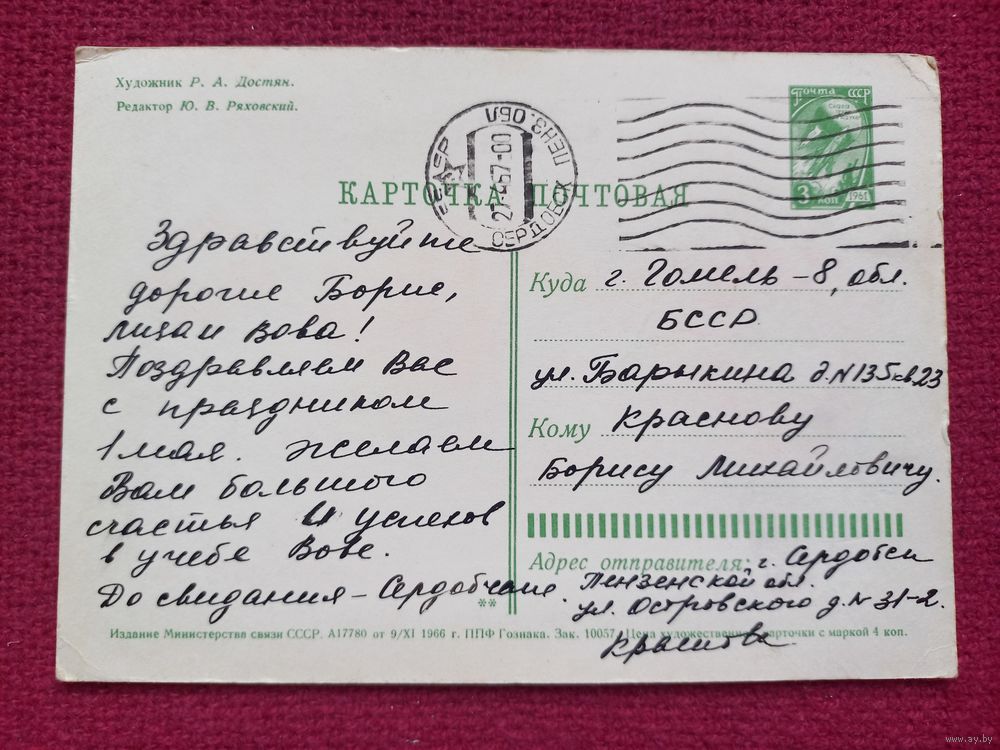 Художник Р. А. Достян.
Редактор Ю. В. Ряховский.
Почта СССР
3 коп 1961
РСФСР СЕРДОБСК ПЕНЗ. ОБЛ
КАРТОЧКА ПОЧТОВАЯ
Здравствуйте
дорогие Борис,
Лиза и Вова!
Поздравляем Вас
с праздником
1 мая. Желаем
Вам большого
счастья и успехов
в учебе Вове.
До свидания – Сердобчане.
Куда г. Гомель – 8, обл.
БССР
ул. Барыкина д. N 135 кв 23
Кому Краснову
Борису Михайловичу.
Адрес отправителя: г. Сердобск
Пензенской обл.
ул. Островского д. N 31-2.
**
Издание Министерства связи СССР. А17780 от 9/XI 1966 г. ППФ Гознака. Зак. 10057. Цена художественной карточки с маркой 4 коп.
www.ay.by